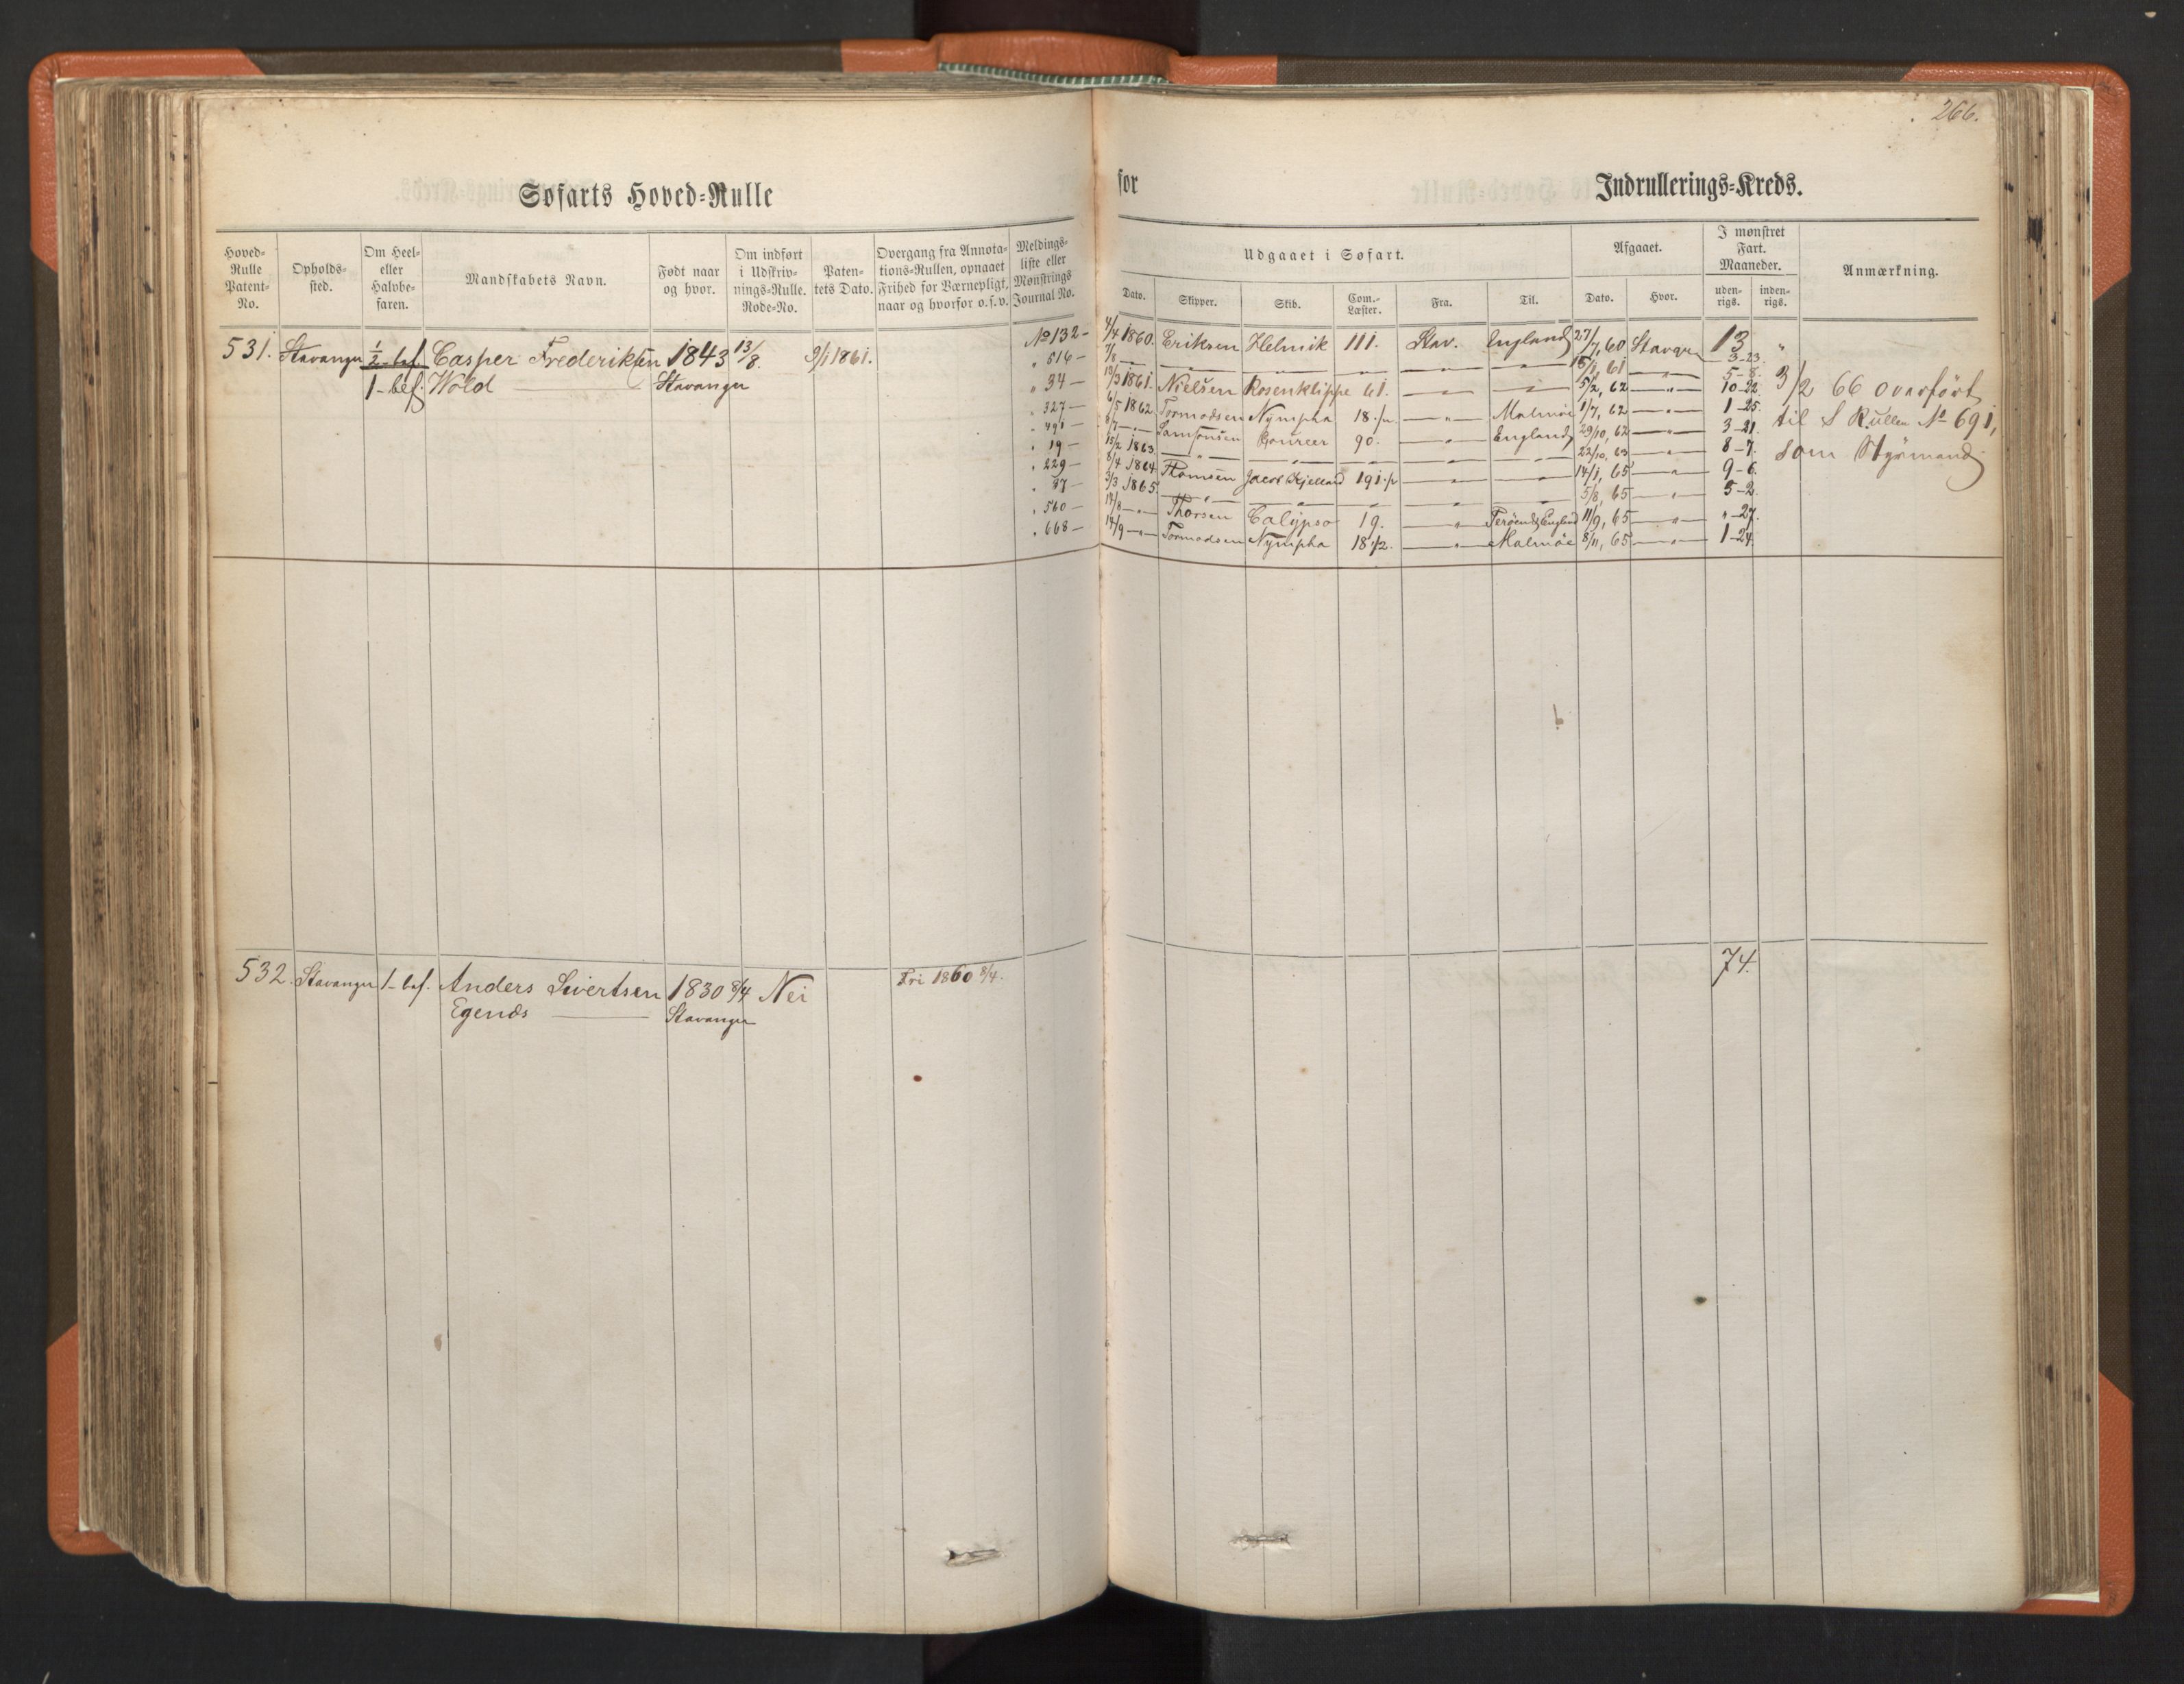 266.
Søfarts Hoved-Rulle for Indrullerings-Kreds.
Hoved-Rulle Patent-No.
Opholds-sted.
Om Heel- eller Halvbe-faren.
Mandskabets Navn.
Født naar og hvor.
Om indført i Udskriv-nings-Rulle. Rode-No.
Paten-tets Dato.
Overgang fra Annota-tions-Rullen, opnaaet Frihed for Værnepligt, naar og hvorfor o.s.v.
Meldings-liste eller Mønstrings Journal No.
Udgaaet i Søfart.
Dato. Skipper. Skib. Com.-Læster. Fra. Til.
Afgaaet.
Dato. Hvor.
I mønstret Fart. Maaneder.
uden-rigs. inden-rigs.
Anmærkning.
531. Stavanger ½ bef. Casper Frederiksen 1843 13/8. 9/1 1861.
1 - bef. Wold — Stavanger
No 132 - 4/4 1860. Eriksen Helmik 111. Stav. England 27/7, 60 Stavger 13 "
" 516 - 7/8 — " — " — " — " — " — 15/1, 61 — " — 3-23.
" 34 - 13/3 1861. Nielsen Rosenklippe 61. — " — " — 5/2, 62 — " — 10-22.
" 327 - 6/5 1862. Tormodsen Nympha 18 ½ — " — Malmöe 1/7, 62 — " — 1-25.
" 491 - 8/7 — " — Samsonsen Courrer 90. — " — England 29/10, 62 — " — 3-21.
" 19 - 15/2 1863 — " — " — " — " — " — 22/10, 63 — " — 8-7.
" 229 - 8/4 1864 Thomsen Jacob Kjelland 191 ½ — " — " — 14/1, 65 — " — 9-6.
" 37 - 3/3 1865. — " — " — " — " — " — 5/8, 65 — " — 5-2.
" 560 - 14/8 — " — Thorsen Calypso 19. — " — 11/9, 65 — " — " -27.
" 668 - 14/9 — " — Tormodsen Nympha 18 ½. — " — Malmöe 8/11, 65 — " — 1-24.
3/2 66 overført
til S Rullen No 691,
som Styrmand
74.
532. Stavanger 1 - bef. Anders Sivertsen 1830 8/4 Nei Fri 1860 8/4.
Egends — Stavanger